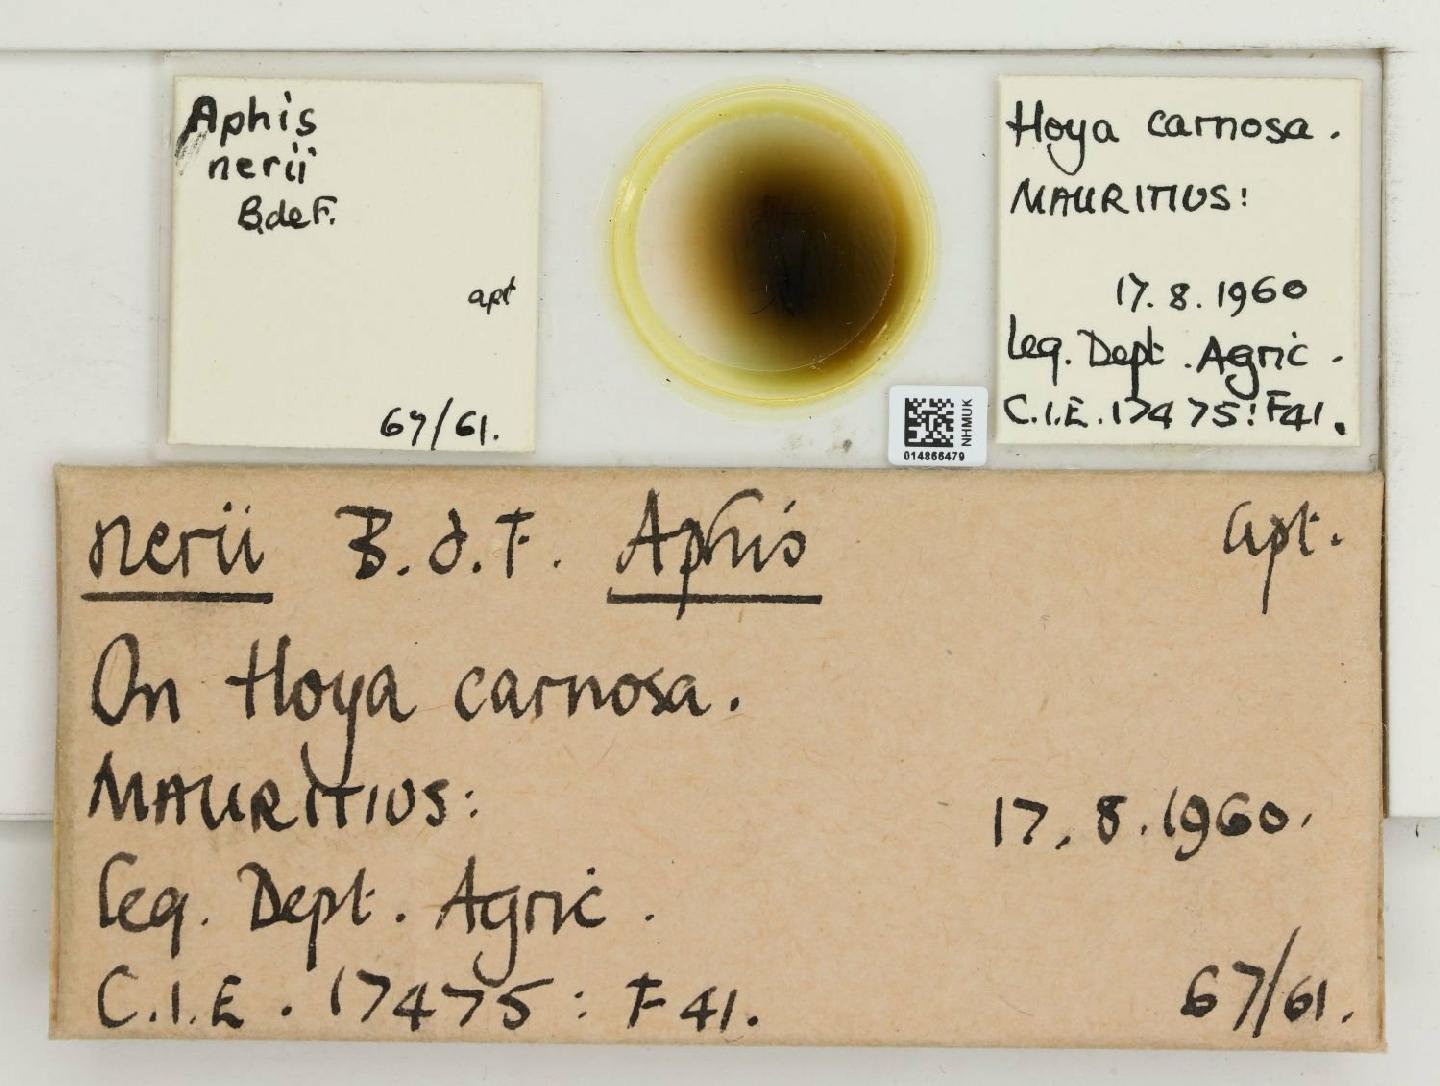 Aphis
nerii
B.deF.
apt
67/61.
NHMUK
014866479
Hoya carnosa.
MAURITIUS:
17.8.1960
leg. Dept. Agric.
C.I.E. 17475: F41.
nerii B.d.F. Aphis apt.
On Hoya carnosa.
MAURITIUS: 17.8.1960.
leg. Dept. Agric.
C.I.E. 17475: F41. 67/61.